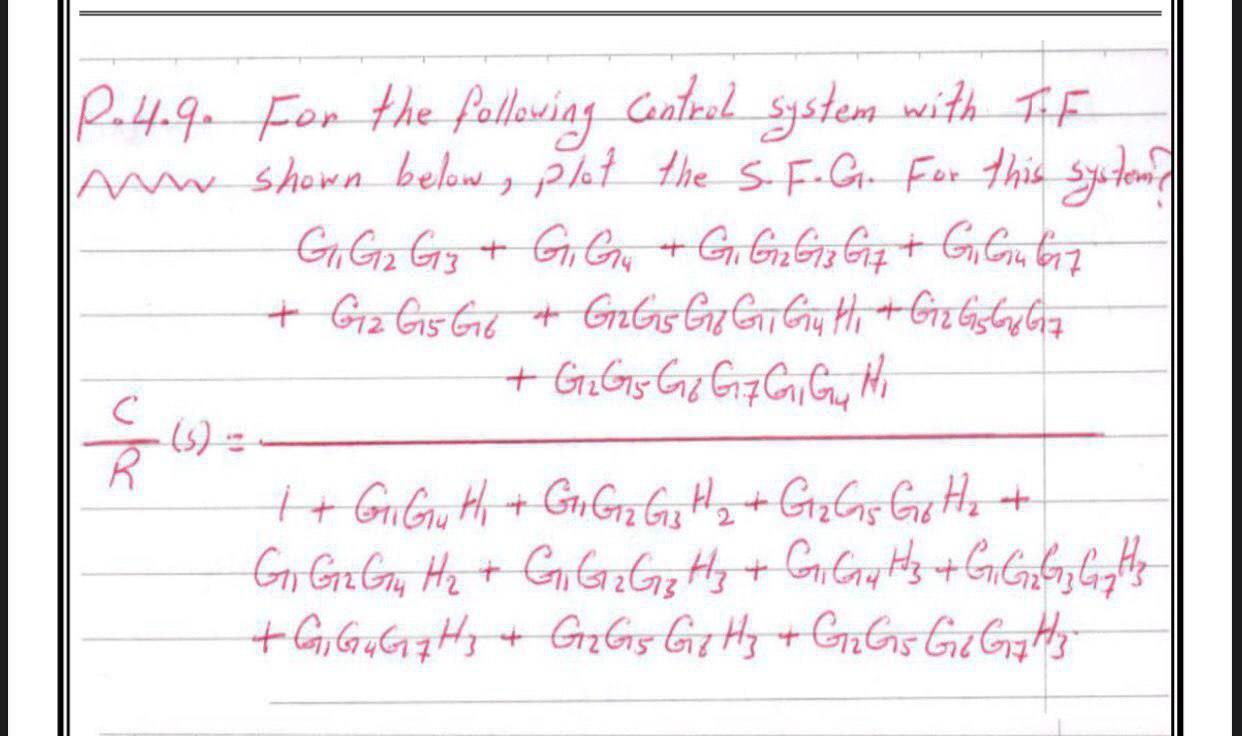 P.4.9. For the following Control system with T.F
shown below, plot the S.F.G. For this system?
G1G2G3 + G1G4 + G1G2G3G7 + G1G4G7
+ G2G5G6 + G2G5G6G1G4H1 + G2G5G6G7
+ G2G5G6G7G1G4H1
C/R (s) =
1 + G1G4H1 + G1G2G3H2 + G2G5G6H2 +
G1G2G4H2 + G1G2G3H3 + G1G4H3 + G1G2G3G7H3
+ G1G4G7H3 + G2G5G6H3 + G2G5G6G7H3